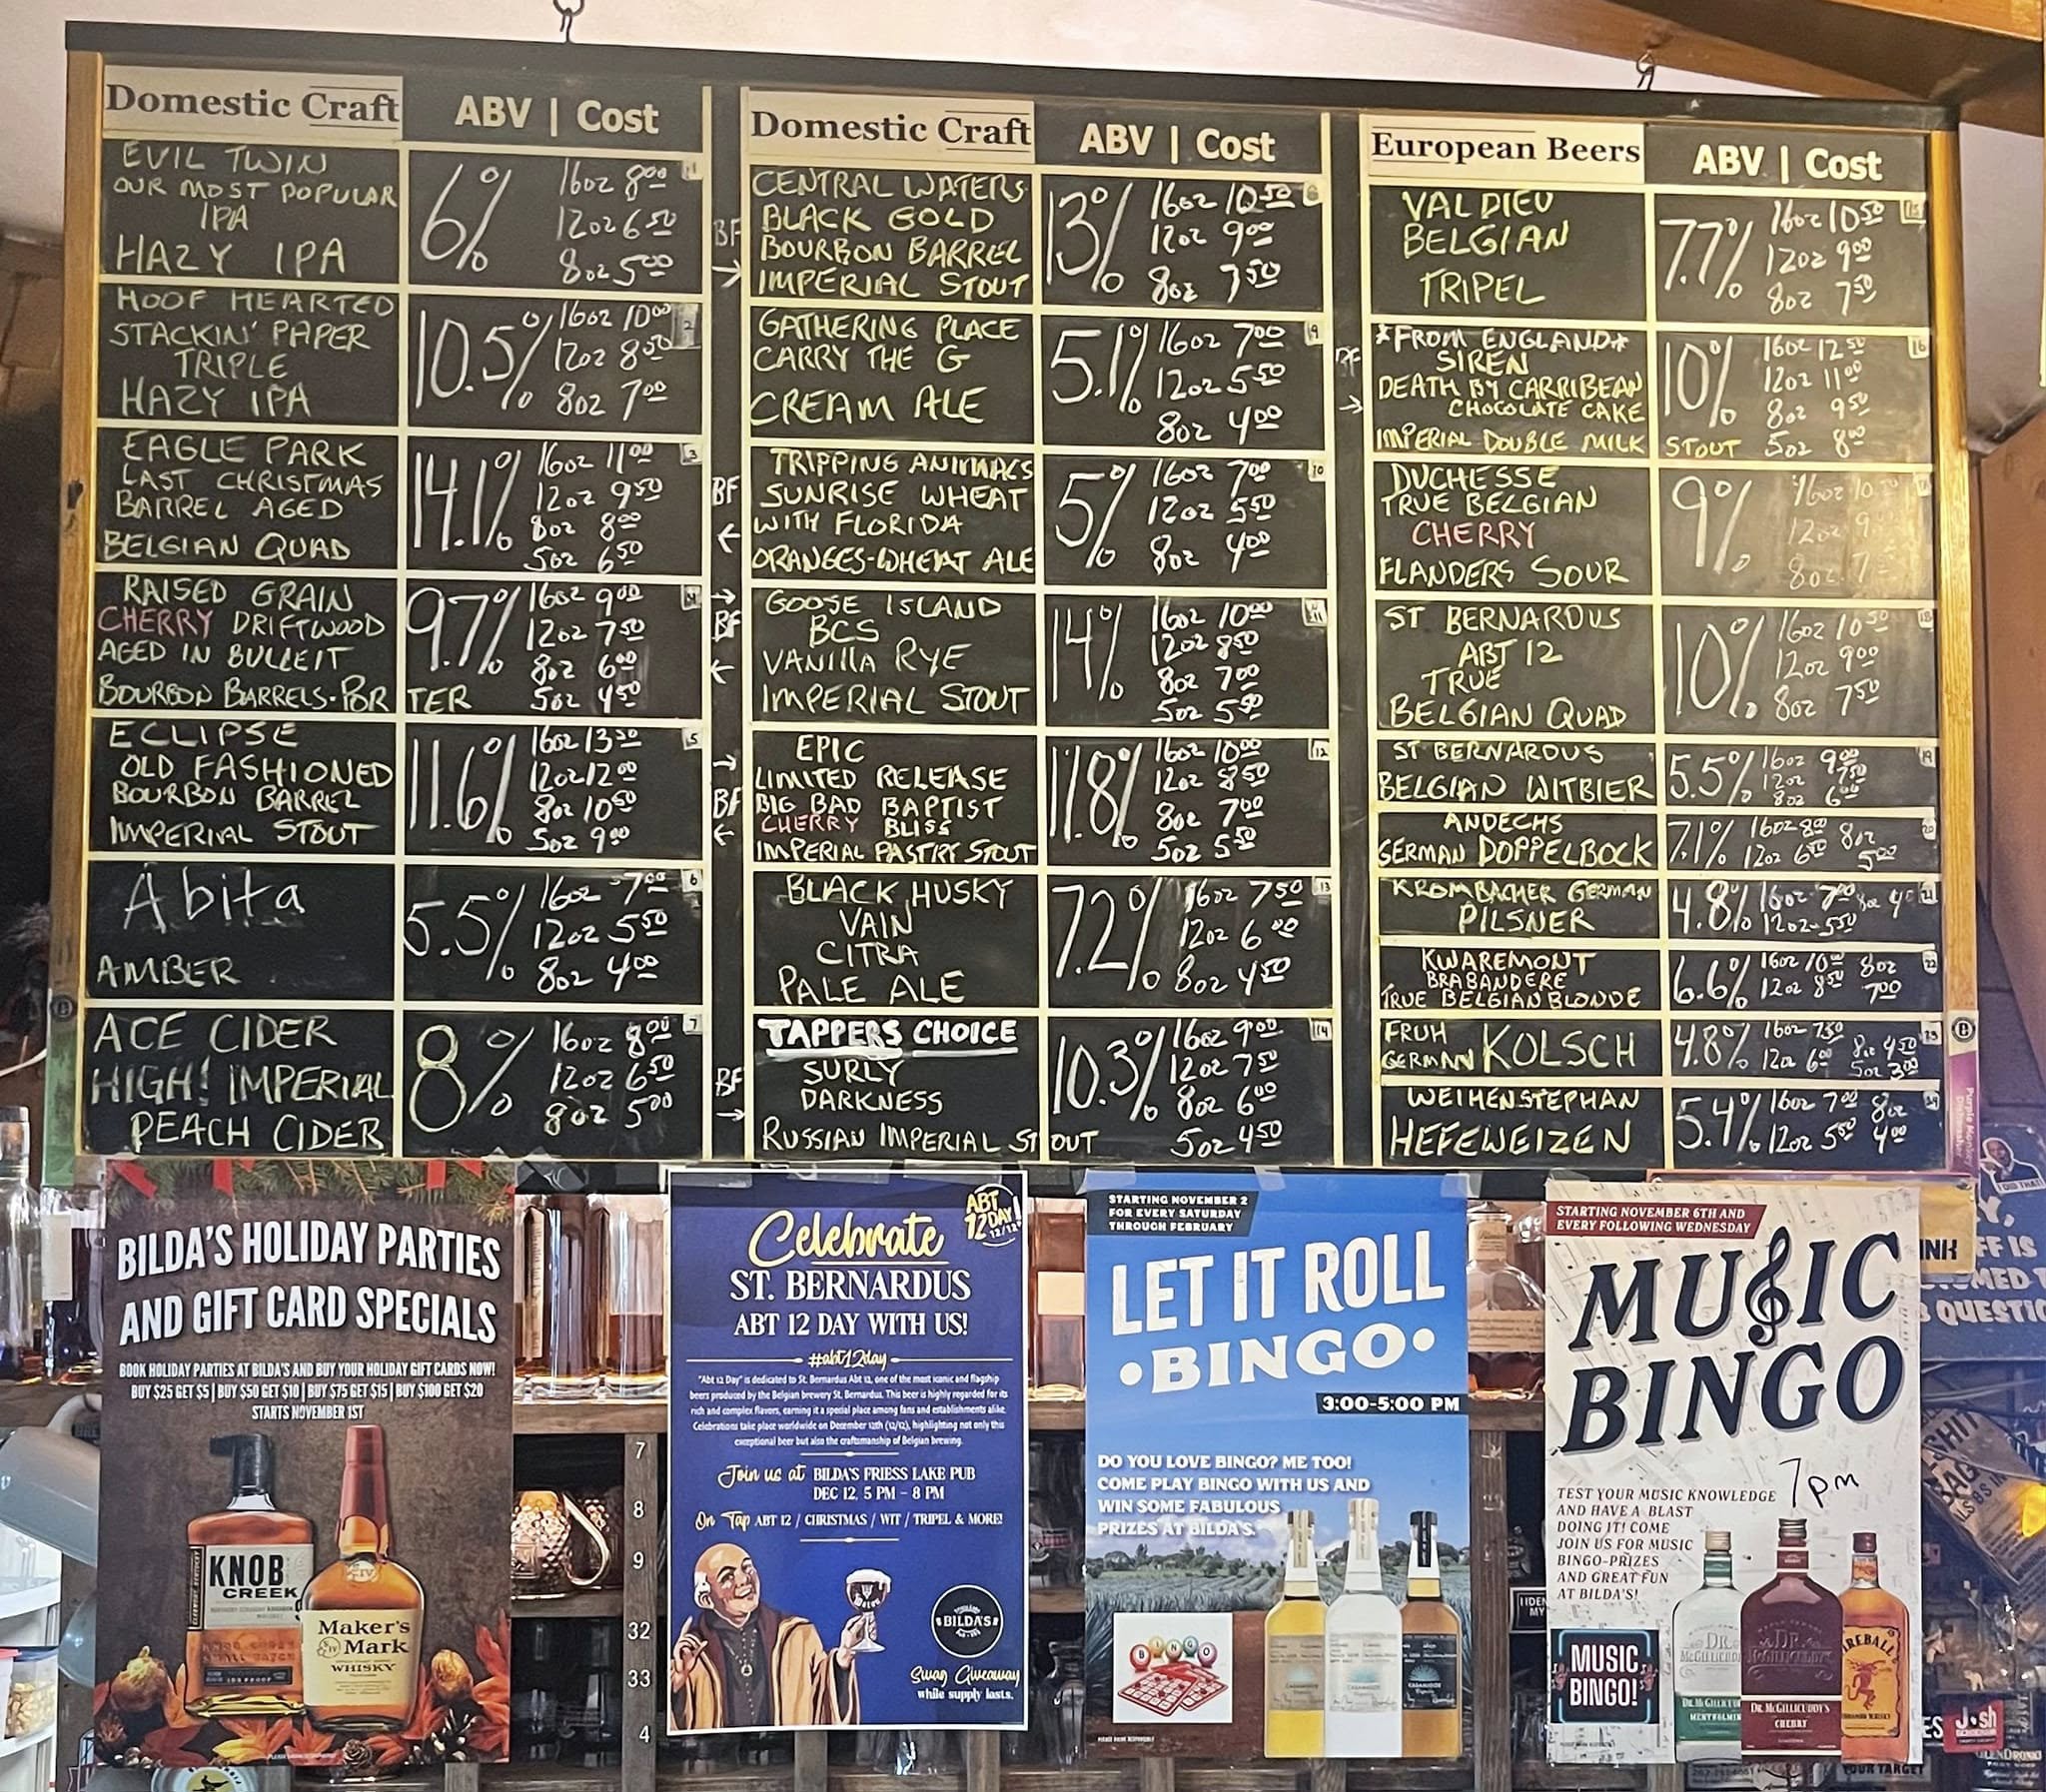 Domestic Craft ABV | Cost
EVIL TWIN
OUR MOST POPULAR
IPA
HAZY IPA
6%
16oz 8.00
12oz 6.50
8oz 5.00
1
HOOF HEARTED
STACKIN' PAPER
TRIPLE
HAZY IPA
10.5%
16oz 10.00
12oz 8.50
8oz 7.00
2
EAGLE PARK
LAST CHRISTMAS
BARREL AGED
BELGIAN QUAD
14.1%
16oz 11.00
12oz 9.50
8oz 8.00
5oz 6.50
3
BF
←
RAISED GRAIN
CHERRY DRIFTWOOD
AGED IN BULLEIT
BOURBON BARRELS-PORTER
9.7%
16oz 9.00
12oz 7.50
8oz 6.00
5oz 4.50
→
BF
←
ECLIPSE
OLD FASHIONED
BOURBON BARREL
IMPERIAL STOUT
11.6%
16oz 13.50
12oz 12.00
8oz 10.50
5oz 9.00
5
→
BF
←
Abita
AMBER
5.5%
16oz 7.00
12oz 5.50
8oz 4.00
6
ACE CIDER
HIGH! IMPERIAL
PEACH CIDER
8%
16oz 8.00
12oz 6.50
8oz 5.00
7
Domestic Craft ABV | Cost
BF
→
CENTRAL WATERS
BLACK GOLD
BOURBON BARREL
IMPERIAL STOUT
13%
16oz 10.50
12oz 9.00
8oz 7.50
GATHERING PLACE
CARRY THE G
CREAM ALE
5.1%
16oz 7.00
12oz 5.50
8oz 4.00
9
TRIPPING ANIMALS
SUNRISE WHEAT
WITH FLORIDA
ORANGES-WHEAT ALE
5%
16oz 7.00
12oz 5.50
8oz 4.00
10
GOOSE ISLAND
BCS
VANILLA RYE
IMPERIAL STOUT
14%
16oz 10.00
12oz 8.50
8oz 7.00
5oz 5.50
11
EPIC
LIMITED RELEASE
BIG BAD BAPTIST
CHERRY BLISS
IMPERIAL PASTRY STOUT
11.8%
16oz 10.00
12oz 8.50
8oz 7.00
5oz 5.50
12
BLACK HUSKY
VAIN
CITRA
PALE ALE
7.2%
16oz 7.50
12oz 6.00
8oz 4.50
13
BF
→
TAPPERS CHOICE
SURLY
DARKNESS
RUSSIAN IMPERIAL STOUT
10.3%
16oz 9.00
12oz 7.50
8oz 6.00
5oz 4.50
14
European Beers ABV | Cost
VAL DIEU
BELGIAN
TRIPEL
7.7%
16oz 10.50
12oz 9.00
8oz 7.50
15
BF
→
*FROM ENGLAND*
SIREN
DEATH BY CARRIBEAN
CHOCOLATE CAKE
IMPERIAL DOUBLE MILK STOUT
10%
16oz 12.50
12oz 11.00
8oz 9.50
5oz 8.00
16
DUCHESSE
TRUE BELGIAN
CHERRY
FLANDERS SOUR
9%
16oz 10
12oz 9
8oz 7
ST BERNARDUS
ABT 12
TRUE
BELGIAN QUAD
10%
16oz 10.50
12oz 9.00
8oz 7.50
18
ST BERNARDUS
BELGIAN WITBIER
5.5%
16oz 9.00
12oz 7.50
8oz 6.00
19
ANDECHS
GERMAN DOPPELBOCK
7.1%
16oz 8.00 8oz
12oz 6.50 5.00
20
KROMBACHER GERMAN
PILSNER
4.8%
16oz 7.00 8oz 4
12oz-5.50
21
KWAREMONT
BRABANDERE
TRUE BELGIAN BLONDE
6.6%
16oz 10.00 8oz
12oz 8.50 7.00
22
FRUH
GERMAN KOLSCH
4.8%
16oz 7.50 8oz 4.50
12oz 6.00 5oz 3.00
23
WEIHENSTEPHAN
HEFEWEIZEN
5.4%
16oz 7.00 8oz
12oz 5.50 4.00
24
BILDA'S HOLIDAY PARTIES
AND GIFT CARD SPECIALS
BOOK HOLIDAY PARTIES AT BILDA'S AND BUY YOUR HOLIDAY GIFT CARDS NOW!
BUY $25 GET $5 | BUY $50 GET $10 | BUY $75 GET $15 | BUY $100 GET $20
STARTS NOVEMBER 1ST
KNOB
CREEK
9
Maker's
Mark
WHISKY
7
8
9
32
33
4
ABT
12 DAY
12/12
Celebrate
ST. BERNARDUS
ABT 12 DAY WITH US!
#abt12day
"Abt 12 Day" is dedicated to St. Bernardus Abt 12, one of the most iconic and flagship
beers produced by the Belgian brewery St. Bernardus. This beer is highly regarded for its
rich and complex flavors, earning it a special place among fans and establishments alike.
Celebrations take place worldwide on December 12th (12/12), highlighting not only this
exceptional beer but also the craftsmanship of Belgian brewing.
Join us at BILDA'S FRIESS LAKE PUB
DEC 12, 5 PM – 8 PM
On Tap ABT 12 / CHRISTMAS / WIT / TRIPEL & MORE!
BILDA'S
Swag Giveaway
while supply lasts.
STARTING NOVEMBER 2
FOR EVERY SATURDAY
THROUGH FEBRUARY
LET IT ROLL
•BINGO•
3:00-5:00 PM
DO YOU LOVE BINGO? ME TOO!
COME PLAY BINGO WITH US AND
WIN SOME FABULOUS
PRIZES AT BILDA'S.
BINGO
STARTING NOVEMBER 6TH AND
EVERY FOLLOWING WEDNESDAY
MUSIC
BINGO
7pm
TEST YOUR MUSIC KNOWLEDGE
AND HAVE A BLAST
DOING IT! COME
JOIN US FOR MUSIC
BINGO-PRIZES
AND GREAT FUN
AT BILDA'S!
MUSIC
BINGO!
DR.
MCGILLICUDDY'S
CHERRY
FIREBALL
I DID THAT!
FF IS
QUESTIO
Josh
YOUR TARGET